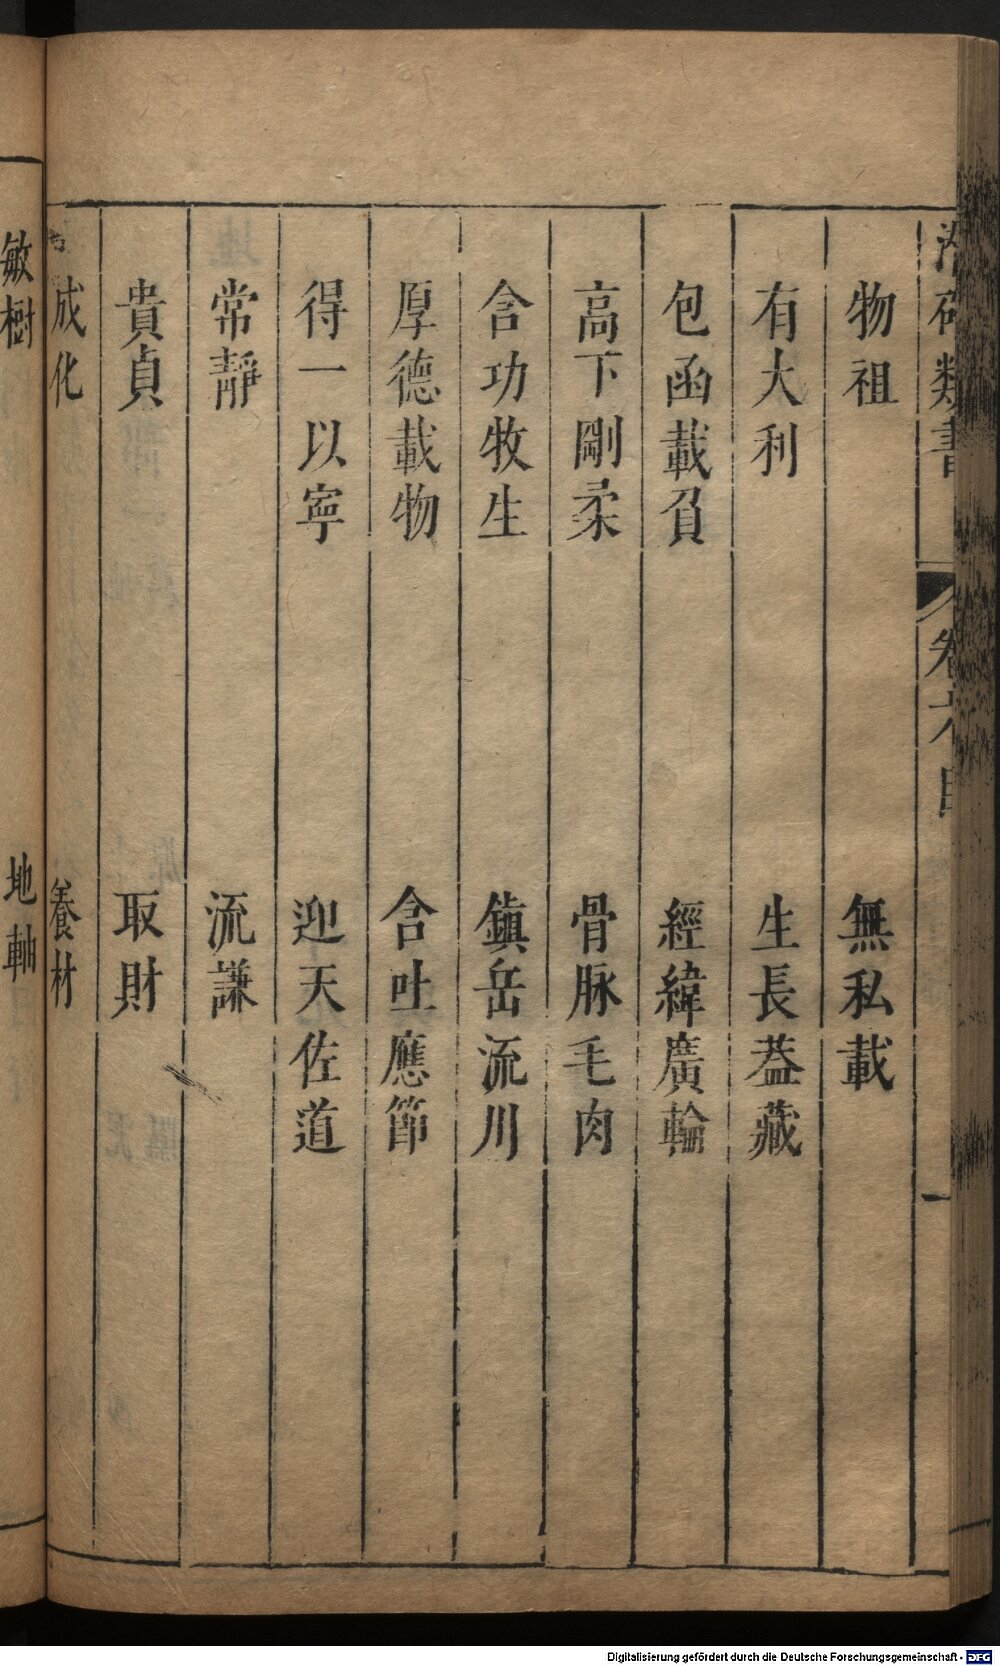 潛確類書 卷六 目 一
物祖 無私載
有大利 生長葢藏
包函載負 經緯廣輪
高下剛柔 骨脉毛肉
含功牧生 鎮岳流川
厚德載物 含吐應節
得一以寧 迎天佐道
常靜 流謙
貴貞 取財
成化 養材
敏樹 地軸
Digitalisierung gefördert durch die Deutsche Forschungsgemeinschaft - DFG